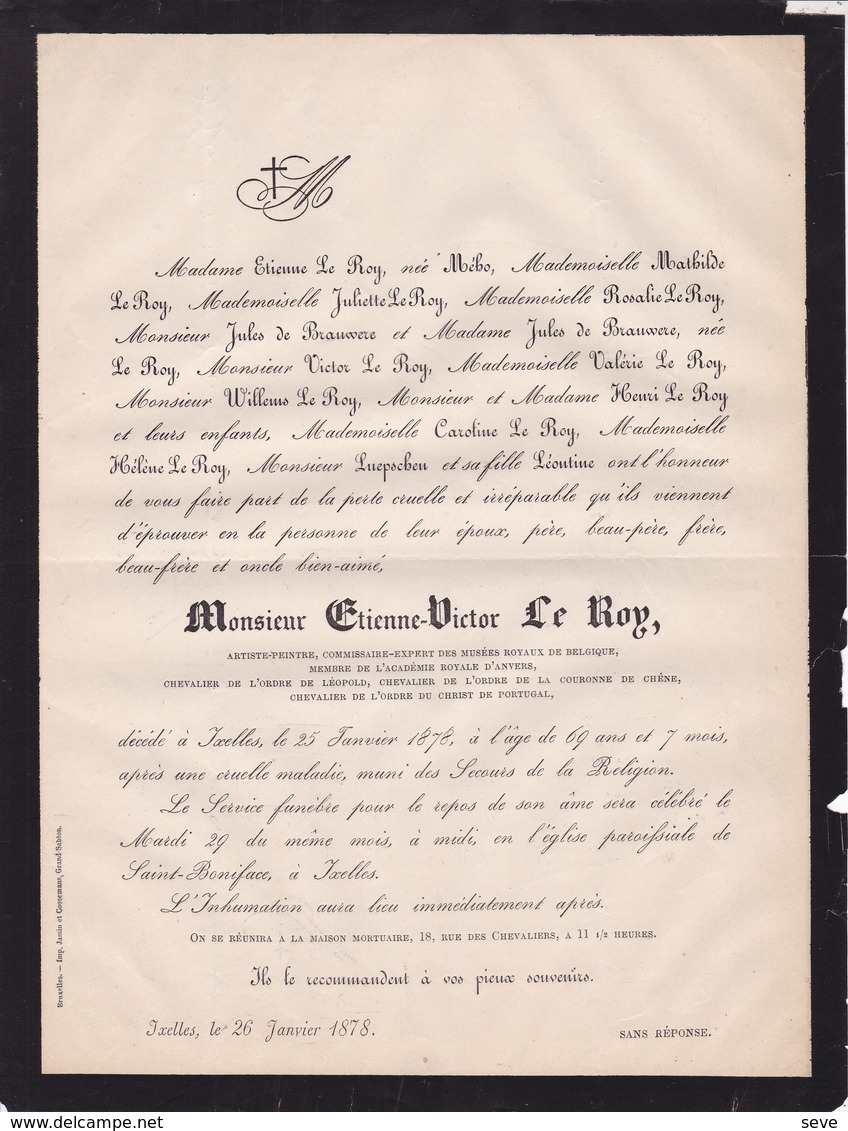 M
Madame Etienne Le Roy, née Mébo, Mademoiselle Mathilde
Le Roy, Mademoiselle Juliette Le Roy, Mademoiselle Rosalie Le Roy,
Monsieur Jules de Brauwere et Madame Jules de Brauwere, née
Le Roy, Monsieur Victor Le Roy, Mademoiselle Valérie Le Roy,
Monsieur Willems Le Roy, Monsieur et Madame Henri Le Roy
et leurs enfants, Mademoiselle Caroline Le Roy, Mademoiselle
Hélène Le Roy, Monsieur Luepschen et sa fille Léontine ont l'honneur
de vous faire part de la perte cruelle et irréparable qu'ils viennent
d'éprouver en la personne de leur époux, père, beau-père, frère,
beau-frère et oncle bien-aimé,
Monsieur Etienne-Victor Le Roy,
ARTISTE-PEINTRE, COMMISSAIRE-EXPERT DES MUSÉES ROYAUX DE BELGIQUE,
MEMBRE DE L'ACADÉMIE ROYALE D'ANVERS,
CHEVALIER DE L'ORDRE DE LÉOPOLD, CHEVALIER DE L'ORDRE DE LA COURONNE DE CHÊNE,
CHEVALIER DE L'ORDRE DU CHRIST DE PORTUGAL,
décédé à Ixelles, le 25 Janvier 1878, à l'âge de 69 ans et 7 mois,
après une cruelle maladie, muni des Secours de la Religion.
Le Service funèbre pour le repos de son âme sera célébré le
Mardi 29 du même mois, à midi, en l'église paroissiale de
Saint-Boniface, à Ixelles.
L'Inhumation aura lieu immédiatement après.
ON SE RÉUNIRA A LA MAISON MORTUAIRE, 18, RUE DES CHEVALIERS, A 11 1/2 HEURES.
Ils le recommandent à vos pieux souvenirs.
Ixelles, le 26 Janvier 1878.
SANS RÉPONSE.
Bruxelles. — Imp. Jassin et Goossemans, Grand-Sablon.
delcampe.net
seve